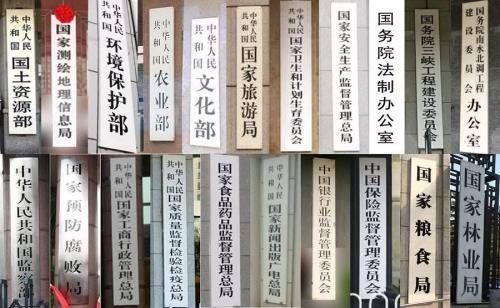 中华人民共和国国土资源部
国家测绘地理信息局
中华人民共和国环境保护部
中华人民共和国农业部
中华人民共和国文化部
中华人民共和国国家旅游局
中华人民共和国国家卫生和计划生育委员会
国家安全生产监督管理总局
国务院法制办公室
国务院三峡工程建设委员会
国务院南水北调工程建设委员会办公室
中华人民共和国监察部
国家预防腐败局
中华人民共和国国家工商行政管理总局
中华人民共和国国家质量监督检验检疫总局
国家食品药品监督管理总局
中华人民共和国国家新闻出版广电总局
中国银行业监督管理委员会
中国保险监督管理委员会
国家粮食局
国家林业局